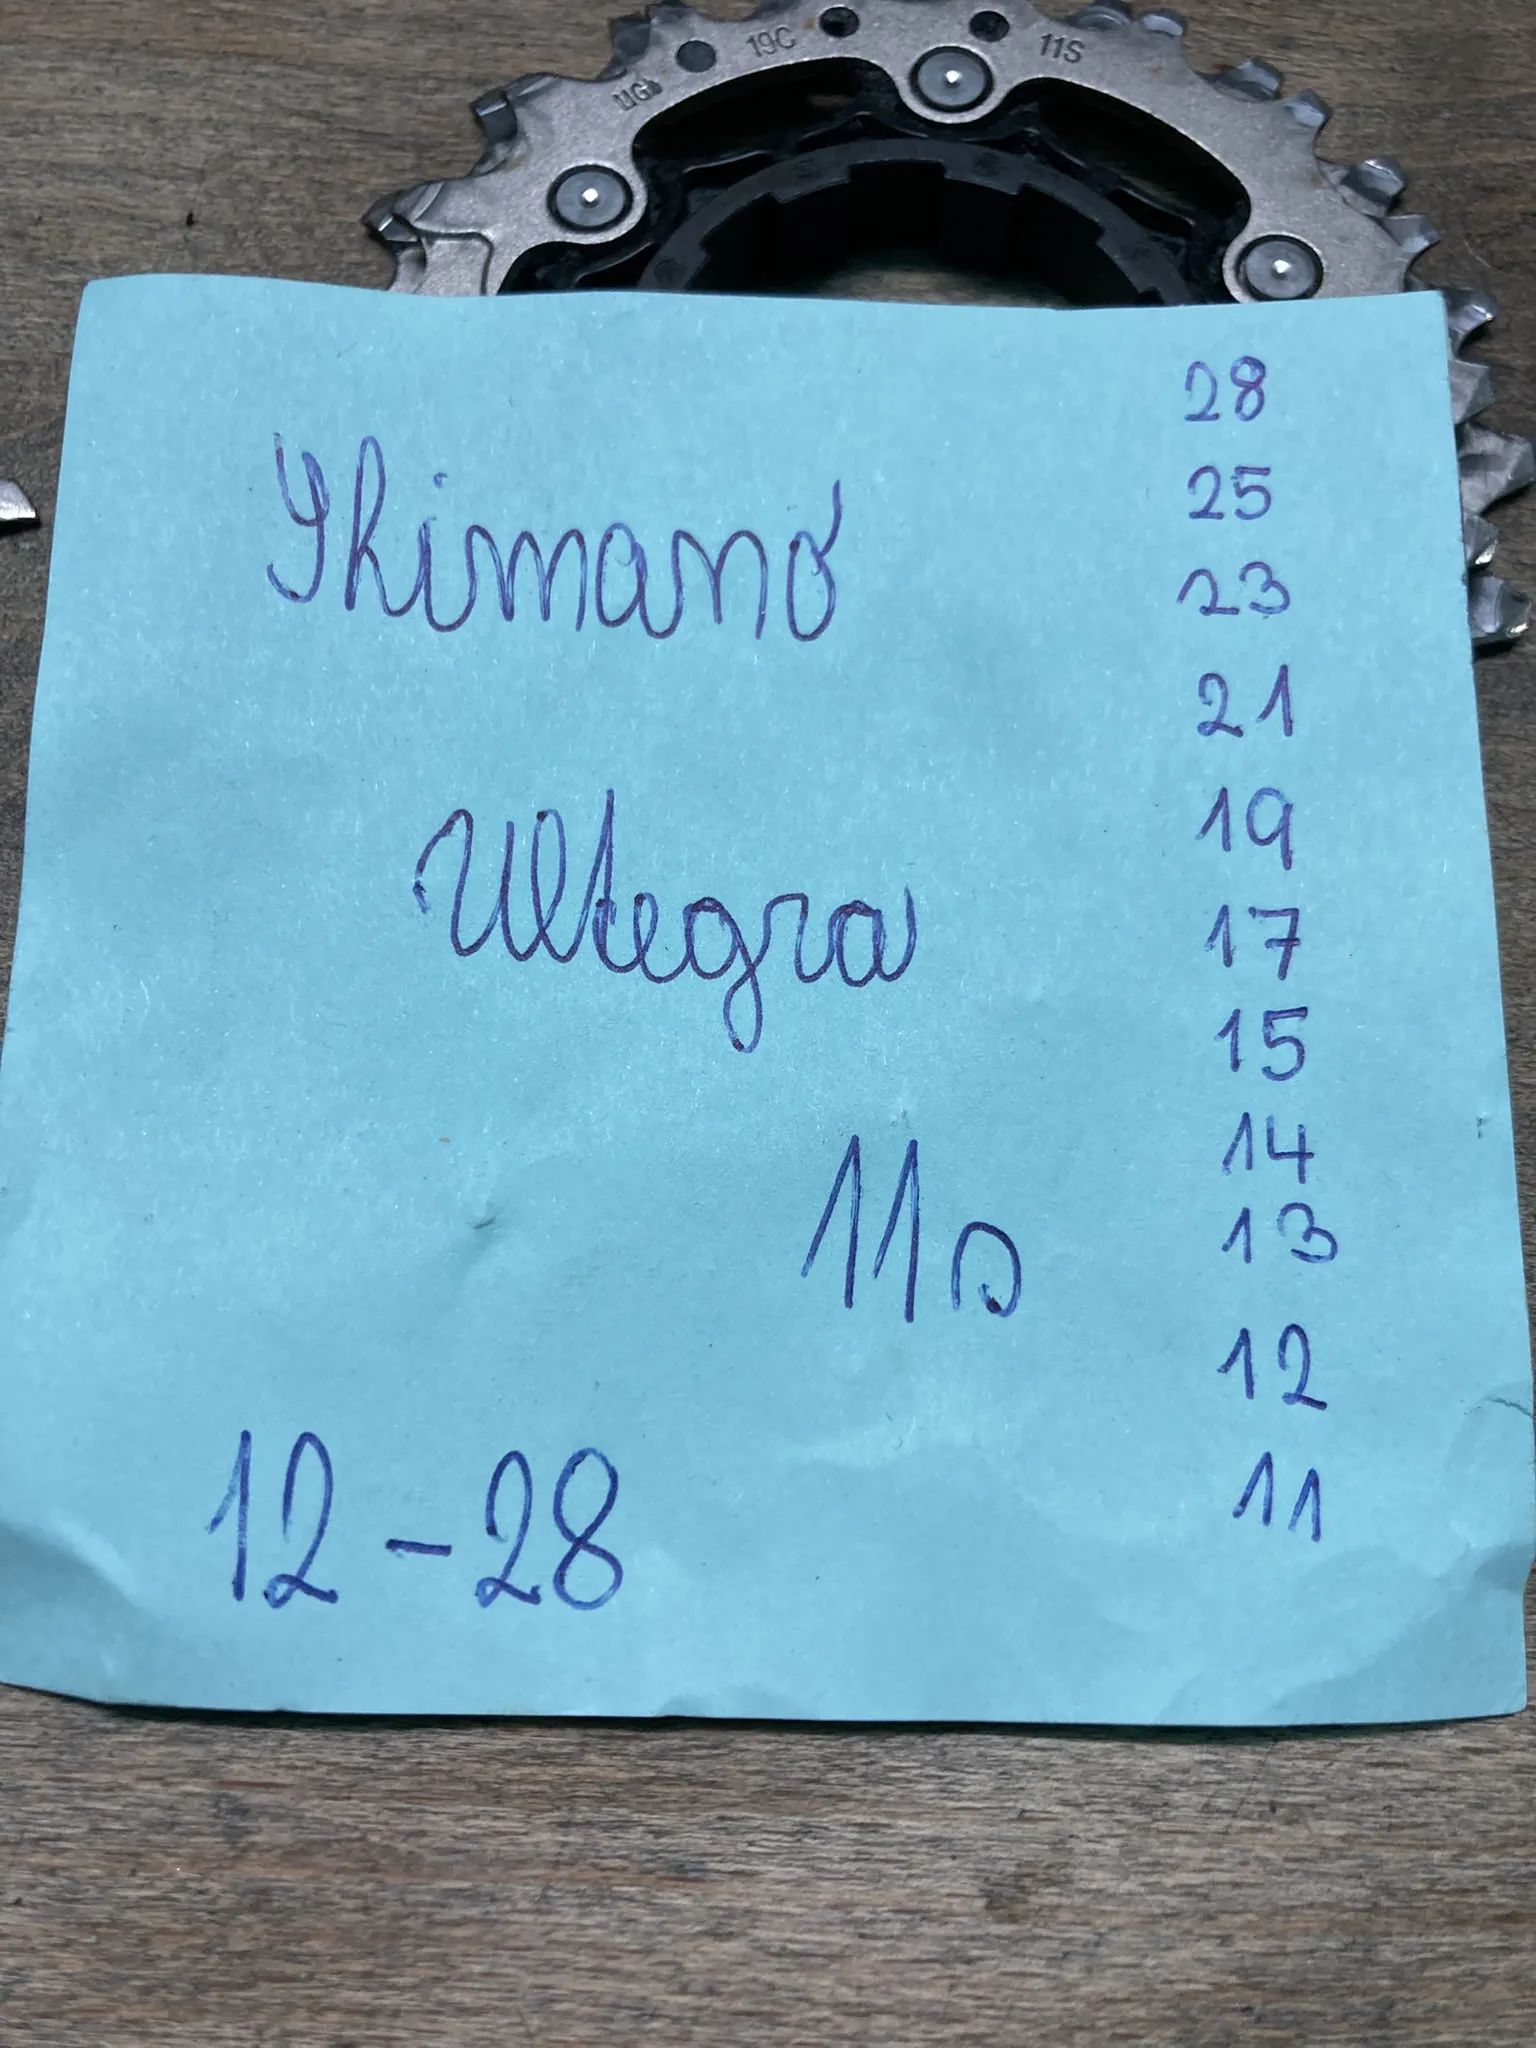 UG
19C
11S
Shimano
Ultegra
11s
12-28
28
25
23
21
19
17
15
14
13
12
11